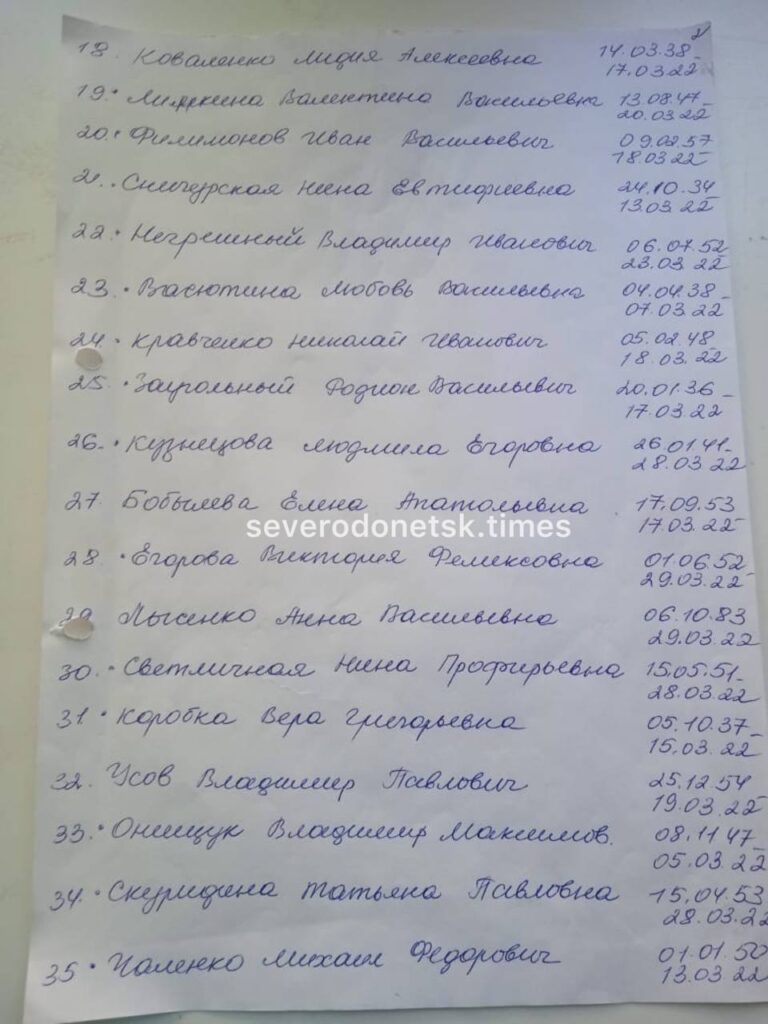 2
18. Коваленко Лидия Алексеевна 14.03.38-
17.03.22
19. Валентина Васильевна 13.08.47-
20.03.22
20. Филимонов Иван Васильевич 09.02.57
18.03.22
21. Нина Евтифиевна 24.10.34
13.03.22
22. Негрешный Владимир Иванович 06.07.52
23.03.22
23. Васютина Любовь Васильевна 04.04.38-
07.03.22
24. Кравченко Николай Иванович 05.02.48
18.03.22
25. Заугольный Родион Васильевич 20.01.36-
17.03.22
26. Кузнецова Людмила Егоровна 26.01.41-
28.03.22
27. Бобылева Елена Анатольевна 17.09.53
17.03.22
severodonetsk.times
28. Егорова Виктория Феликсовна 01.06.52
29.03.22
29 Лысенко Анна Васильевна 06.10.83
29.03.22
30. Светличная Нина Профирьевна 15.05.51-
28.03.22
31. Коробка Вера Григорьевна 05.10.37-
15.03.22
32. Усов Владимир Павлович 25.12.54
19.03.22
33. Онищук Владимир Максимов. 08.11.47-
05.03.22
34. Скуридина Татьяна Павловна 15.04.53
28.03.22
35. Михаил Федорович 01.01.50
13.03.22